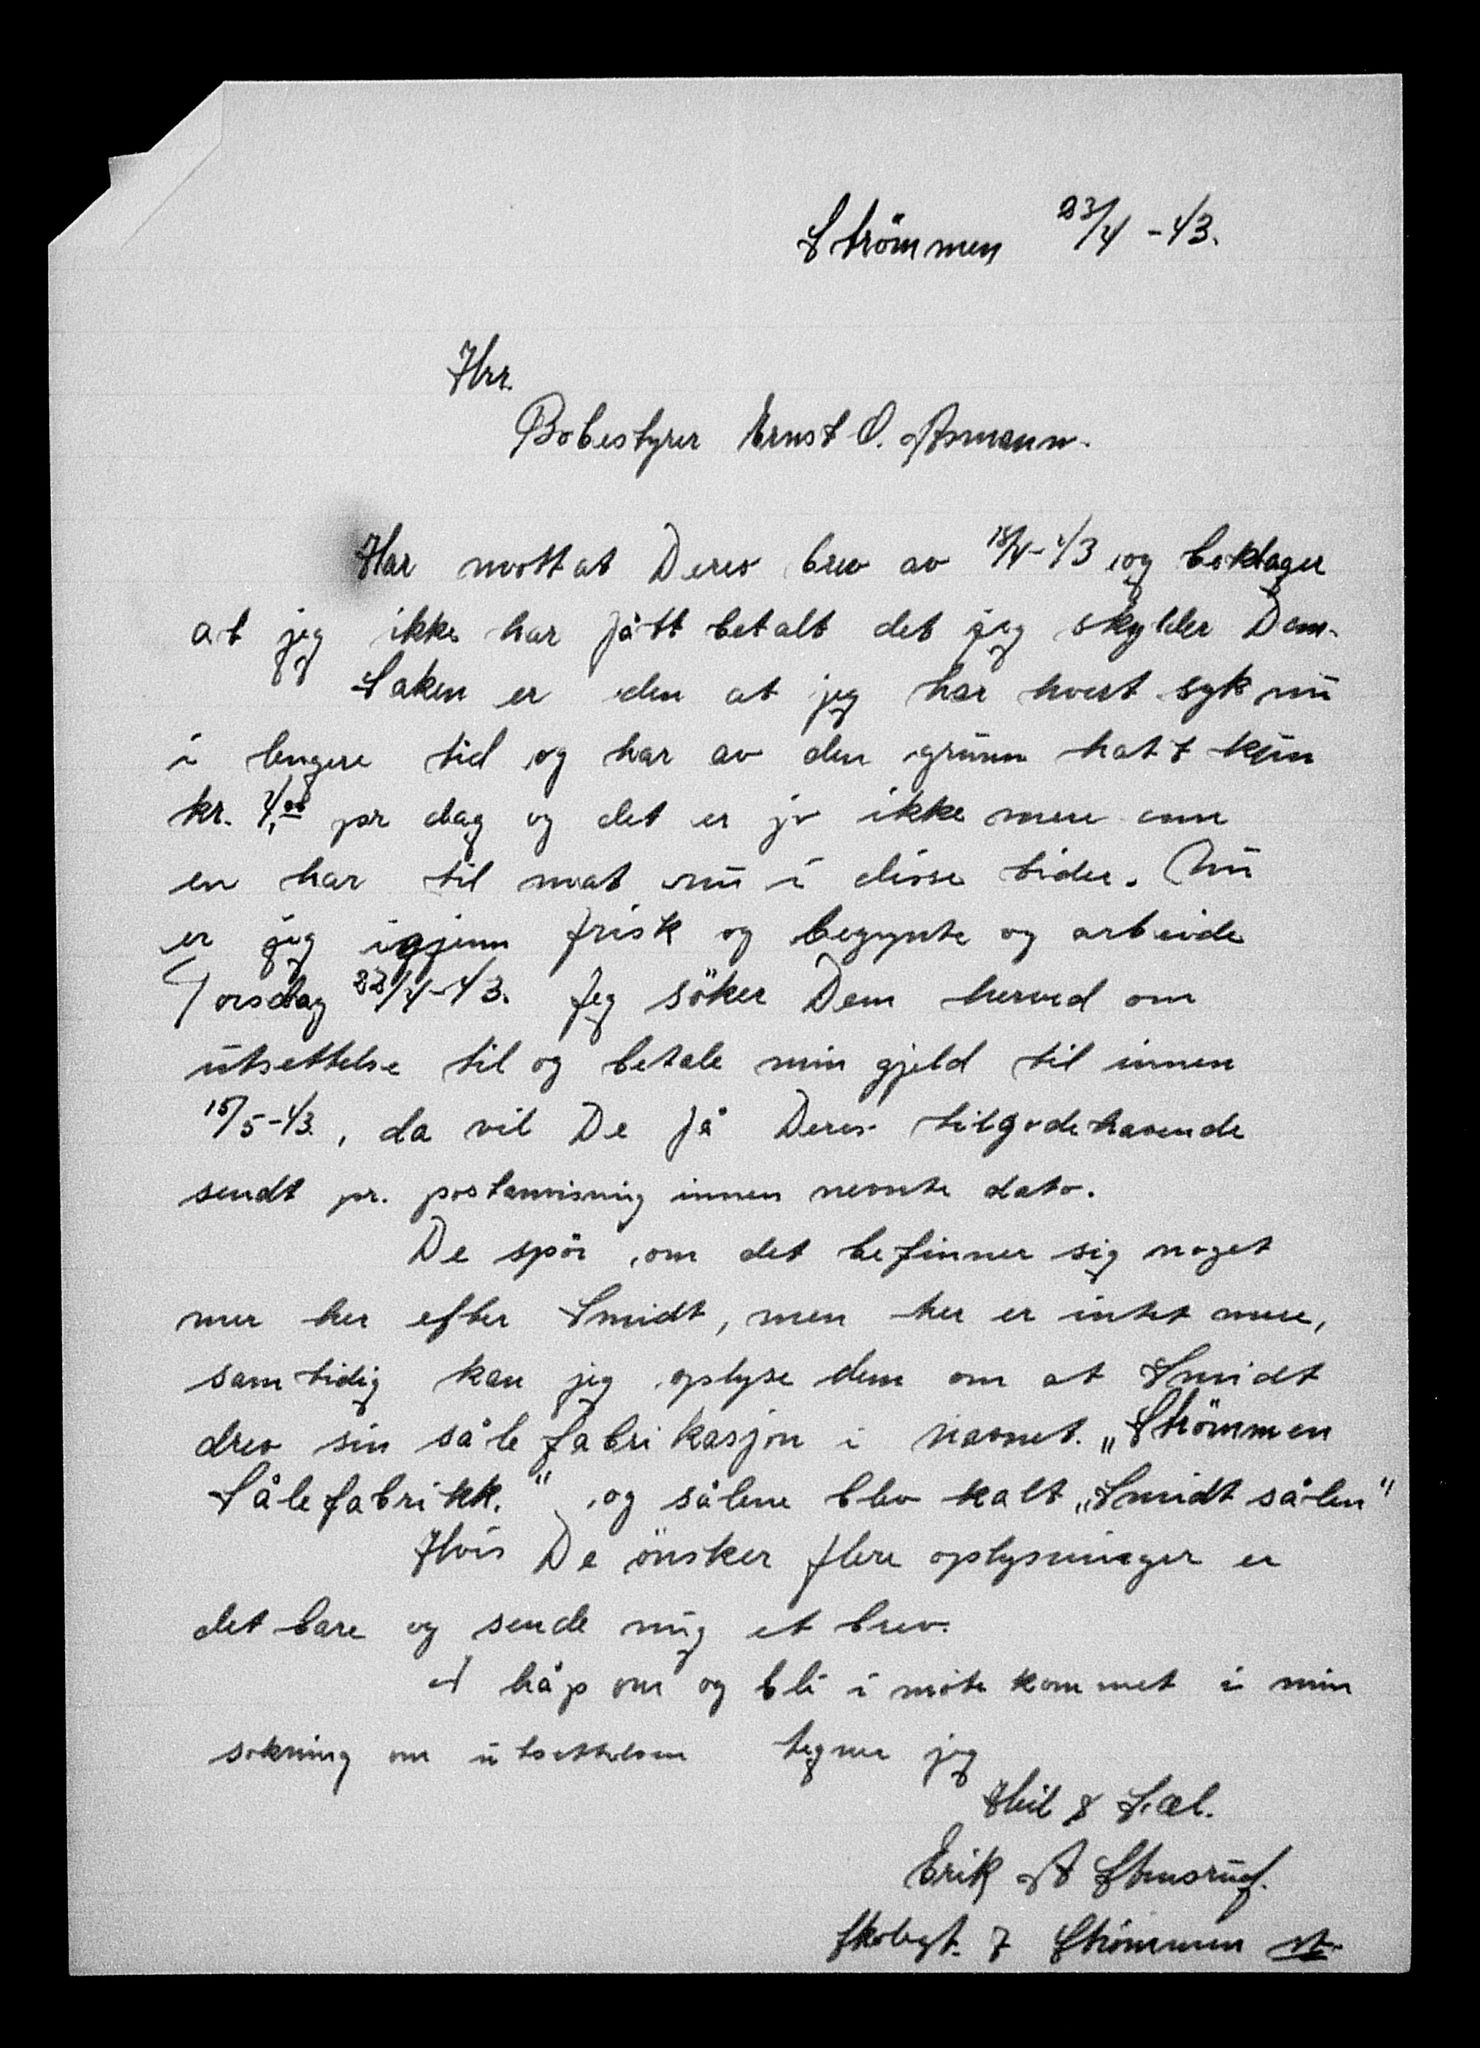 Strömmen 23/4 - 43.
Hrr.
Bobestyrer Ernst O. Asmann.
Har mottat Deres brev av 18/4-43 og beklager
at jeg ikke har fått betalt det jeg skylder Dem.
Saken er den at jeg har hvert syk nu
i lengere tid og har av den grunn hatt kun
kr. 4,00 pr dag og det er jo ikke mere enn
en har til mat nu i disse tider. Nu
er jeg igjenn frisk og begynte og arbeide
Torsdag 22/4-43. Jeg söker Dem herved om
utsettelse til og betale min gjeld til innen
15/5-43, da vil De få Deres tilgodehavende
sendt pr. postanvisning innen nevnte dato.
De spör om det befinner sig noget
mer her efter Smidt, men her er intet mere,
samtidig kan jeg oplyse dem om at Smidt
drev sin sålefabrikasjon i navnet „Strömmen
Sålefabrikk." og sålene blev kalt „Smidt sålen"
Hvis De önsker flere oplysninger er
det bare og sende mig et brev.
I håp om og bli i möte kommet i min
sökning om utsettelsen tegner jeg
Heil & Sæl.
Erik A Stensrud.
Skolegt. 7 Strömmen st.